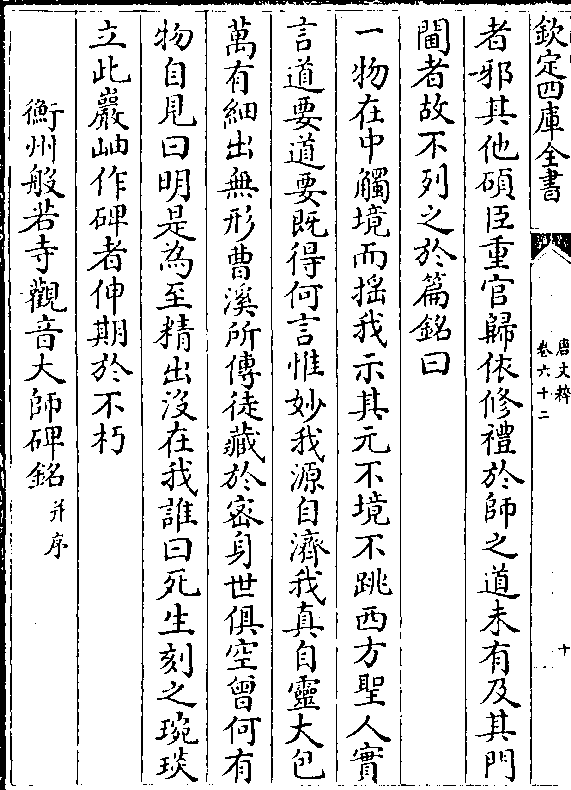 欽定四庫全書
唐文粹
卷六十二
十
者邪其他碩臣重官歸依修禮於師之道未有及其門
閫者故不列之於篇銘曰
一物在中觸境而搖我示其元不境不跳西方聖人實
言道要道要既得何言惟妙我源自濟我真自靈大包
萬有細出無形曹溪所傳徒藏於密身世俱空曾何有
物自見曰明是為至精出沒在我誰曰死生刻之琬琰
立此巖岫作碑者伸期於不朽
衡州般若寺觀音大師碑銘并序